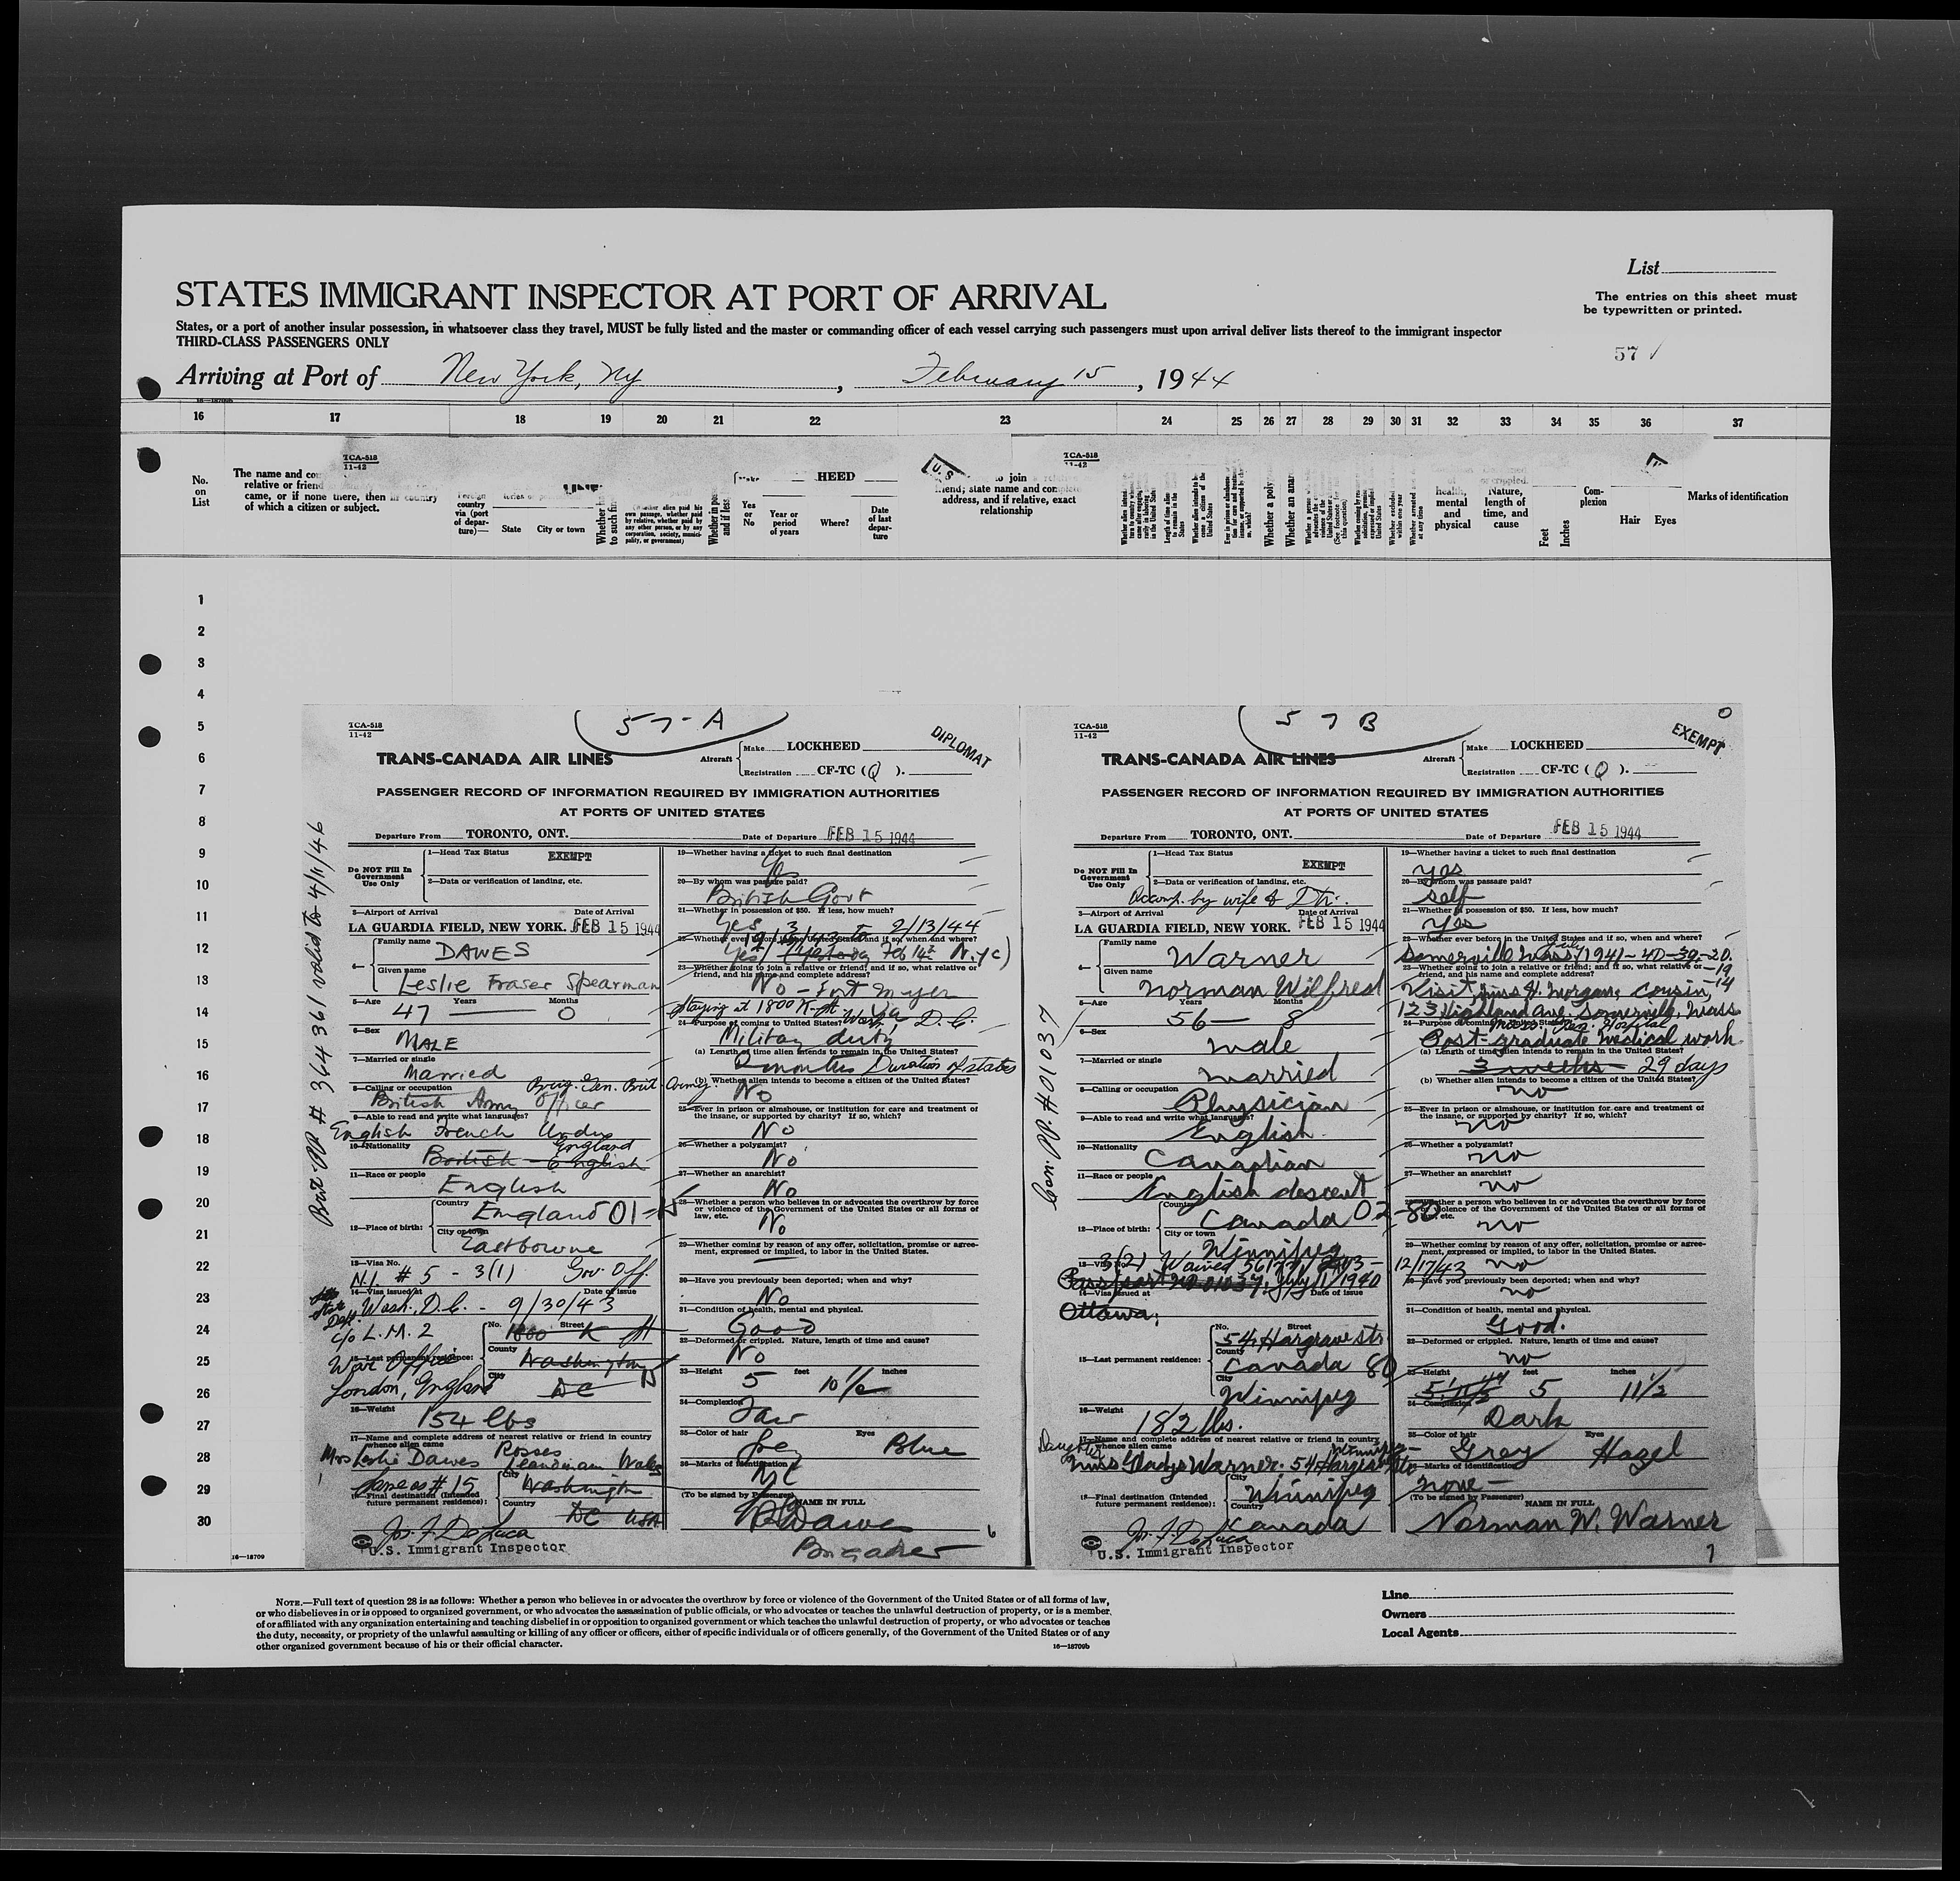 List
STATES IMMIGRANT INSPECTOR AT PORT OF ARRIVAL
The entries on this sheet must
be typewritten or printed.
States, or a port of another insular possession, in whatsoever class they travel, MUST be fully listed and the master or commanding officer of each vessel carrying such passengers must upon arrival deliver lists thereof to the immigrant inspector
THIRD-CLASS PASSENGERS ONLY
57
Arriving at Port of New York, NY, February 15, 1944
16 17 18 19 20 21 22 23 24 25 26 27 28 29 30 31 32 33 34 35 36 37
TCA-518
11-42
TCA-518
11-42
No.
on
List
The name and
relative or friend
came, or if none there, then in country
of which a citizen or subject.
country
via (port
of depar-
ture)—
State City or town
HEED
Yes
or
No
Year or
period
of years
Where?
Date
of last
depar-
ture
to join
friend; state name and complete
address, and if relative, exact
relationship
health,
mental
and
physical
Nature,
length of
time, and
cause
Feet
Inches
Com-
plexion
Hair Eyes
Marks of identification
1
2
3
4
5
6
7
8
9
10
11
12
13
14
15
16
17
18
19
20
21
22
23
24
25
26
27
28
29
30
16—18709
57-A
TCA-518
11-42
DIPLOMAT
TRANS-CANADA AIR LINES
Aircraft Make LOCKHEED
Registration CF-TC (Q).
PASSENGER RECORD OF INFORMATION REQUIRED BY IMMIGRATION AUTHORITIES
AT PORTS OF UNITED STATES
Departure From TORONTO, ONT. Date of Departure FEB 15 1944
Brit. PP # 364361 valid to 4/11/46
Do NOT Fill In
Government
Use Only
1—Head Tax Status EXEMPT
2—Data or verification of landing, etc.
3—Airport of Arrival Date of Arrival
LA GUARDIA FIELD, NEW YORK. FEB 15 1944
4— Family name DAWES
Given name Leslie Fraser Spearman
5—Age 47 Years 0 Months
6—Sex MALE
7—Married or single Married
8—Calling or occupation Brig. Gen. Brit. Army
British Army Officer
9—Able to read and write what languages?
English French Urdu
10—Nationality England
British - English
11—Race or people English
12—Place of birth: Country England 01-15
City or town Eastbourne
13—Visa No. N.I. # 5 - 3(1) Gov. Off.
14—Visa issued at Date of issue
State Dept. Wash., D.C. - 9/30/43
c/o L.M.2
War Office
London, England
15—Last permanent residence: No. Street 1800 K St
County Washington
City DC
16—Weight 154 lbs
17—Name and complete address of nearest relative or friend in country
whence alien came
Mrs Leslie Dawes Rosses Wales
Same as # 15
18—Final destination (Intended
future permanent residence): City Washington
Country DC USA
Jos. F. DeLuca
U.S. Immigrant Inspector
19—Whether having a ticket to such final destination
Yes
20—By whom was passage paid?
British Govt
21—Whether in possession of $50. If less, how much?
Yes 2/13/44
22—Whether ever before in the United States and if so, when and where?
Yes (Yesterday Feb 14th N.Y.C)
23—Whether going to join a relative or friend; and if so, what relative or
friend, and his name and complete address?
No - Fort Myer Va
Staying at 1800 K St Wash D.C.
24—Purpose of coming to United States?
Military duty
(a) Length of time alien intends to remain in the United States?
2 months Duration of status
(b) Whether alien intends to become a citizen of the United States?
No
25—Ever in prison or almshouse, or institution for care and treatment of
the insane, or supported by charity? If so, which?
No
26—Whether a polygamist?
No
27—Whether an anarchist?
No
28—Whether a person who believes in or advocates the overthrow by force
or violence of the Government of the United States or all forms of
law, etc.
No
29—Whether coming by reason of any offer, solicitation, promise or agree-
ment, expressed or implied, to labor in the United States.
30—Have you previously been deported; when and why?
No
31—Condition of health, mental and physical.
Good
32—Deformed or crippled. Nature, length of time and cause?
No
33—Height 5 feet 10 1/2 inches
34—Complexion
Fair
35—Color of hair Grey Eyes Blue
36—Marks of identification
Nil
(To be signed by Passenger) NAME IN FULL
Dawes
Brigadier
6
57 B
TCA-518
11-42
EXEMPT
TRANS-CANADA AIR LINES
Aircraft Make LOCKHEED
Registration CF-TC (Q).
PASSENGER RECORD OF INFORMATION REQUIRED BY IMMIGRATION AUTHORITIES
AT PORTS OF UNITED STATES
Departure From TORONTO, ONT. Date of Departure FEB 15 1944
Can. PP. #01037
Do NOT Fill In
Government
Use Only
1—Head Tax Status EXEMPT
2—Data or verification of landing, etc.
Accomp. by wife & Dtr.
3—Airport of Arrival Date of Arrival
LA GUARDIA FIELD, NEW YORK. FEB 15 1944
4— Family name Warner
Given name Norman Wilfred
5—Age 56 Years 8 Months
6—Sex male
7—Married or single married
8—Calling or occupation Physician
9—Able to read and write what languages?
English
10—Nationality Canadian
11—Race or people English descent
12—Place of birth: Country Canada 02-80
City or town Winnipeg
13—Visa No. 3(2) Waived 12/17/43
Passport No. 01037, July 11/1940
14—Visa issued at Date of issue
Ottawa,
15—Last permanent residence: No. Street 54 Hargrave str.
County Canada 80
City Winnipeg
16—Weight 182 lbs.
17—Name and complete address of nearest relative or friend in country
whence alien came
Daughter Winnipeg
Miss Gladys Warner. 54 Hargrave Str
18—Final destination (Intended
future permanent residence): City Winnipeg
Country Canada
Jos. F. DeLuca
U.S. Immigrant Inspector
19—Whether having a ticket to such final destination
yes
20—By whom was passage paid?
self
21—Whether in possession of $50. If less, how much?
yes
22—Whether ever before in the United States and if so, when and where?
Somerville Mass. July 1941-40-39-20-19-14
23—Whether going to join a relative or friend; and if so, what relative or
friend, and his name and complete address?
Visit, Miss H. Morgan, cousin,
123 Highland Ave. Somerville, Mass
24—Purpose of coming to United States? Mass. Gen. Hospital
Post-graduate medical work
(a) Length of time alien intends to remain in the United States?
3 weeks 29 days
(b) Whether alien intends to become a citizen of the United States?
no
25—Ever in prison or almshouse, or institution for care and treatment of
the insane, or supported by charity? If so, which?
no
26—Whether a polygamist?
no
27—Whether an anarchist?
no
28—Whether a person who believes in or advocates the overthrow by force
or violence of the Government of the United States or all forms of
law, etc.
no
29—Whether coming by reason of any offer, solicitation, promise or agree-
ment, expressed or implied, to labor in the United States.
no
30—Have you previously been deported; when and why?
no
31—Condition of health, mental and physical.
Good.
32—Deformed or crippled. Nature, length of time and cause?
no
33—Height 5 feet 11 1/2 inches
34—Complexion
Dark
35—Color of hair Grey Eyes Hazel
36—Marks of identification
none
(To be signed by Passenger) NAME IN FULL
Norman W. Warner
7
NOTE.—Full text of question 28 is as follows: Whether a person who believes in or advocates the overthrow by force or violence of the Government of the United States or of all forms of law,
or who disbelieves in or is opposed to organized government, or who advocates the assassination of public officials, or who advocates or teaches the unlawful destruction of property, or is a member
of or affiliated with any organization entertaining and teaching disbelief in or opposition to organized government or which teaches the unlawful destruction of property, or who advocates or teaches
the duty, necessity, or propriety of the unlawful assaulting or killing of any officer or officers, either of specific individuals or of officers generally, of the Government of the United States or of any
other organized government because of his or their official character.
16—18709b
Line
Owners
Local Agents